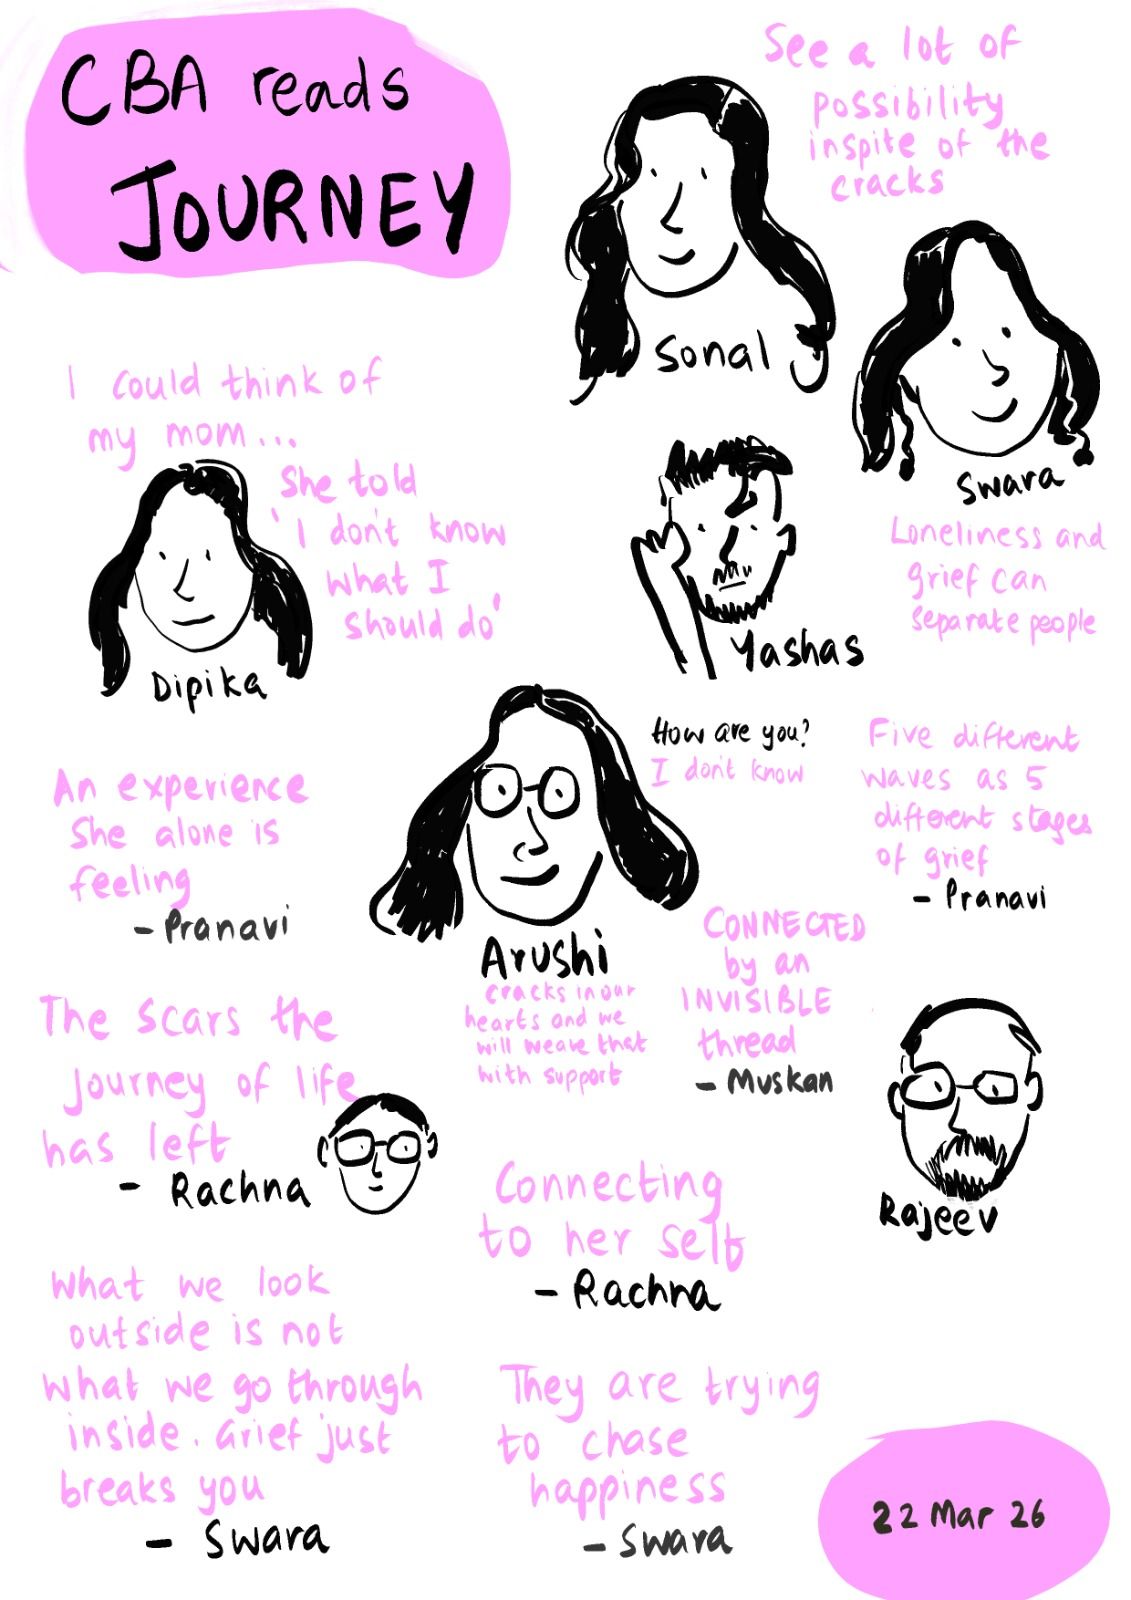 CBA reads
JOURNEY
See a lot of
possibility
inspite of the
cracks
Sonal
Swara
Loneliness and
grief can
separate people
I could think of
my mom...
She told
'I don't know
what I
should do'
Dipika
Yashas
How are you?
I don't know
Five different
waves as 5
different stages
of grief
- Pranavi
An experience
She alone is
feeling
- Pranavi
Arushi
cracks in our
hearts and we
will weave that
with support
CONNECTED
by an
INVISIBLE
thread
- Muskan
The scars the
journey of life
has left
- Rachna
Rajeev
Connecting
to her self
- Rachna
What we look
outside is not
what we go through
inside. Grief just
breaks you
- Swara
They are trying
to chase
happiness
- Swara
22 Mar 26